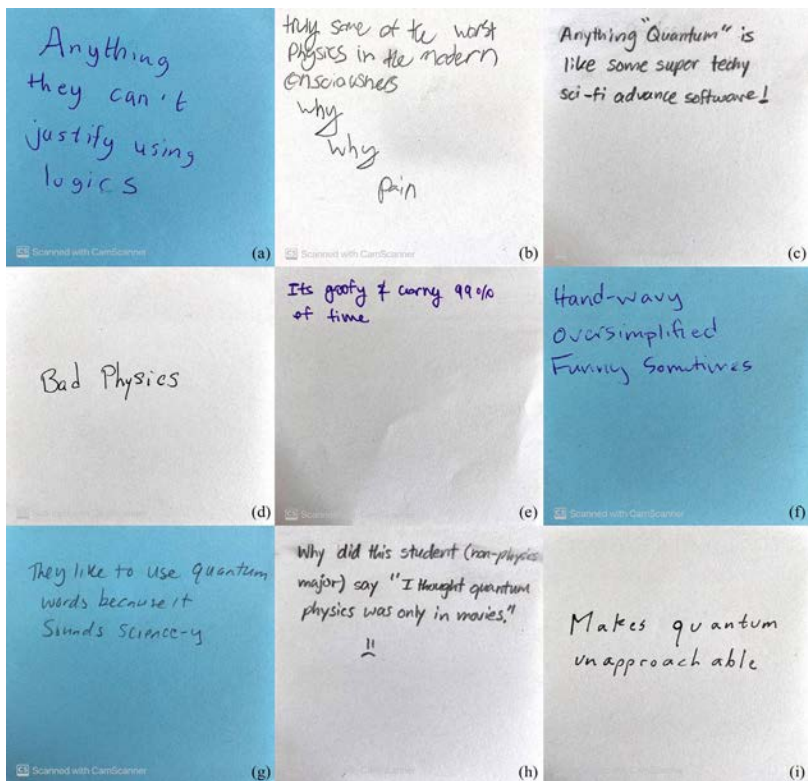 Anything
they can't
justify using
logics
CS Scanned with CamScanner
(a)
truly some of the worst
Physics in the modern
consciousness
why
why
pain
CS Scanned with CamScanner
(b)
Anything "Quantum" is
like some super techy
sci-fi advance software!
(c)
Bad Physics
CS Scanned with CamScanner
(d)
Its goofy & corny 99%
of time
CS Scanned with CamScanner
(e)
Hand-wavy
Oversimplified
Funny Sometimes
CS Scanned with CamScanner
(f)
They like to use quantum
words because it
Sounds Science-y
CS Scanned with CamScanner
(g)
Why did this student (non-physics
major) say "I thought quantum
physics was only in movies."
(h)
Makes quantum
unapproachable
(i)